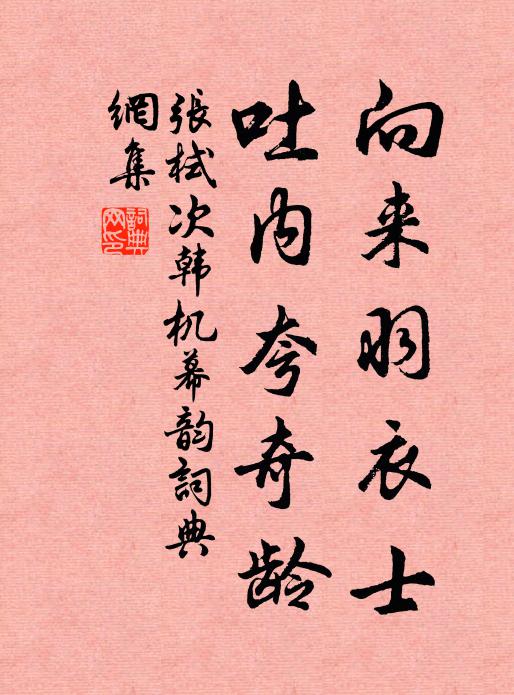 向来羽衣士
吐内夸奇龄
張栻次韩机幕韵詞典
網集
詞典
网印